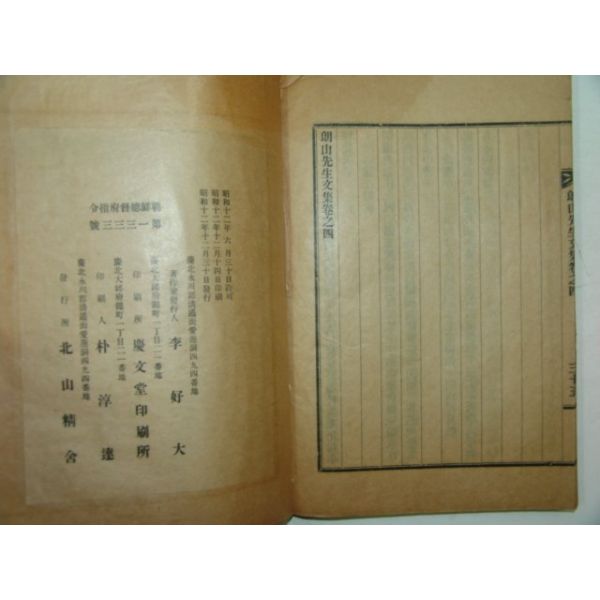 朗山先生文集卷之四
朗山先生文集卷之四
三十五
昭和十二年 六 月三十日許可
昭和十二年十二月十四日印刷
昭和十二年十二月三十日發行
朝鮮總督府指令
第一三三三號
慶北永川郡清通面愛蓮洞四九四番地
著作兼發行人 李好大
慶北大邱府錦町一丁目二一番地
印刷所 慶文堂印刷所
慶北大邱府錦町一丁目二一番地
印刷人 朴淳達
慶北永川郡清通面愛蓮洞四九四番地
發行所 北山精舍